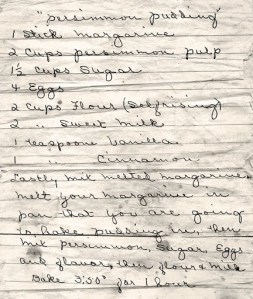 "persimmon pudding"
1 Stick margarine
2 Cups persimmon pulp
1½ Cups Sugar
4 Eggs
2 Cups Flour (Selfrising)
2 " Sweet Milk
1 Teaspoon Vanilla
1 " Cinnamon
Lastly mix melted margarine.
melt your margarine in
pan that you are going
to bake pudding in, then
mix persimmon, Sugar, Eggs
and flavor, then flour & milk
Bake 350° for 1 hour